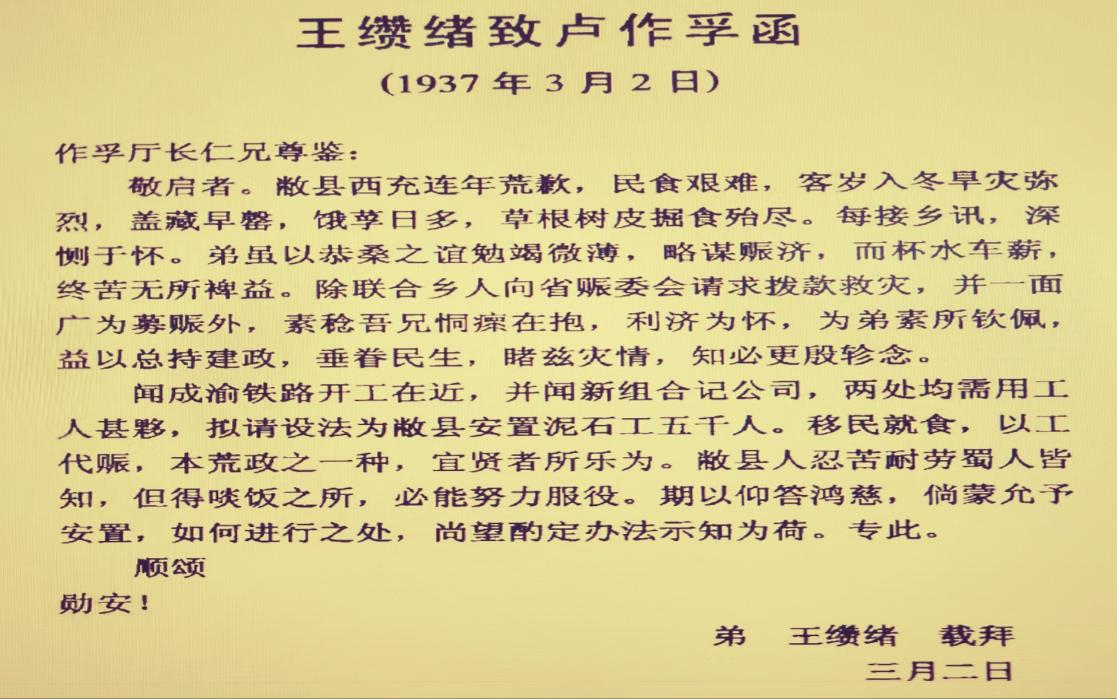 王缵绪致卢作孚函
(1937 年 3 月 2 日)
作孚厅长仁兄尊鉴：
敬启者。敝县西充连年荒歉，民食艰难，客岁入冬旱灾弥
烈，盖藏早罄，饿莩日多，草根树皮掘食殆尽。每接乡讯，深
恻于怀。弟虽以恭桑之谊勉竭微薄，略谋赈济，而杯水车薪，
终苦无所裨益。除联合乡人向省赈委会请求拨款救灾，并一面
广为募赈外，素稔吾兄恫瘝在抱，利济为怀，为弟素所钦佩，
益以总持建政，垂眷民生，睹兹灾情，知必更殷轸念。
闻成渝铁路开工在近，并闻新组合记公司，两处均需用工
人甚夥，拟请设法为敝县安置泥石工五千人。移民就食，以工
代赈，本荒政之一种，宜贤者所乐为。敝县人忍苦耐劳蜀人皆
知，但得啖饭之所，必能努力服役。期以仰答鸿慈，倘蒙允予
安置，如何进行之处，尚望酌定办法示知为荷。专此。
顺颂
勋安！
弟 王缵绪 载拜
三月二日